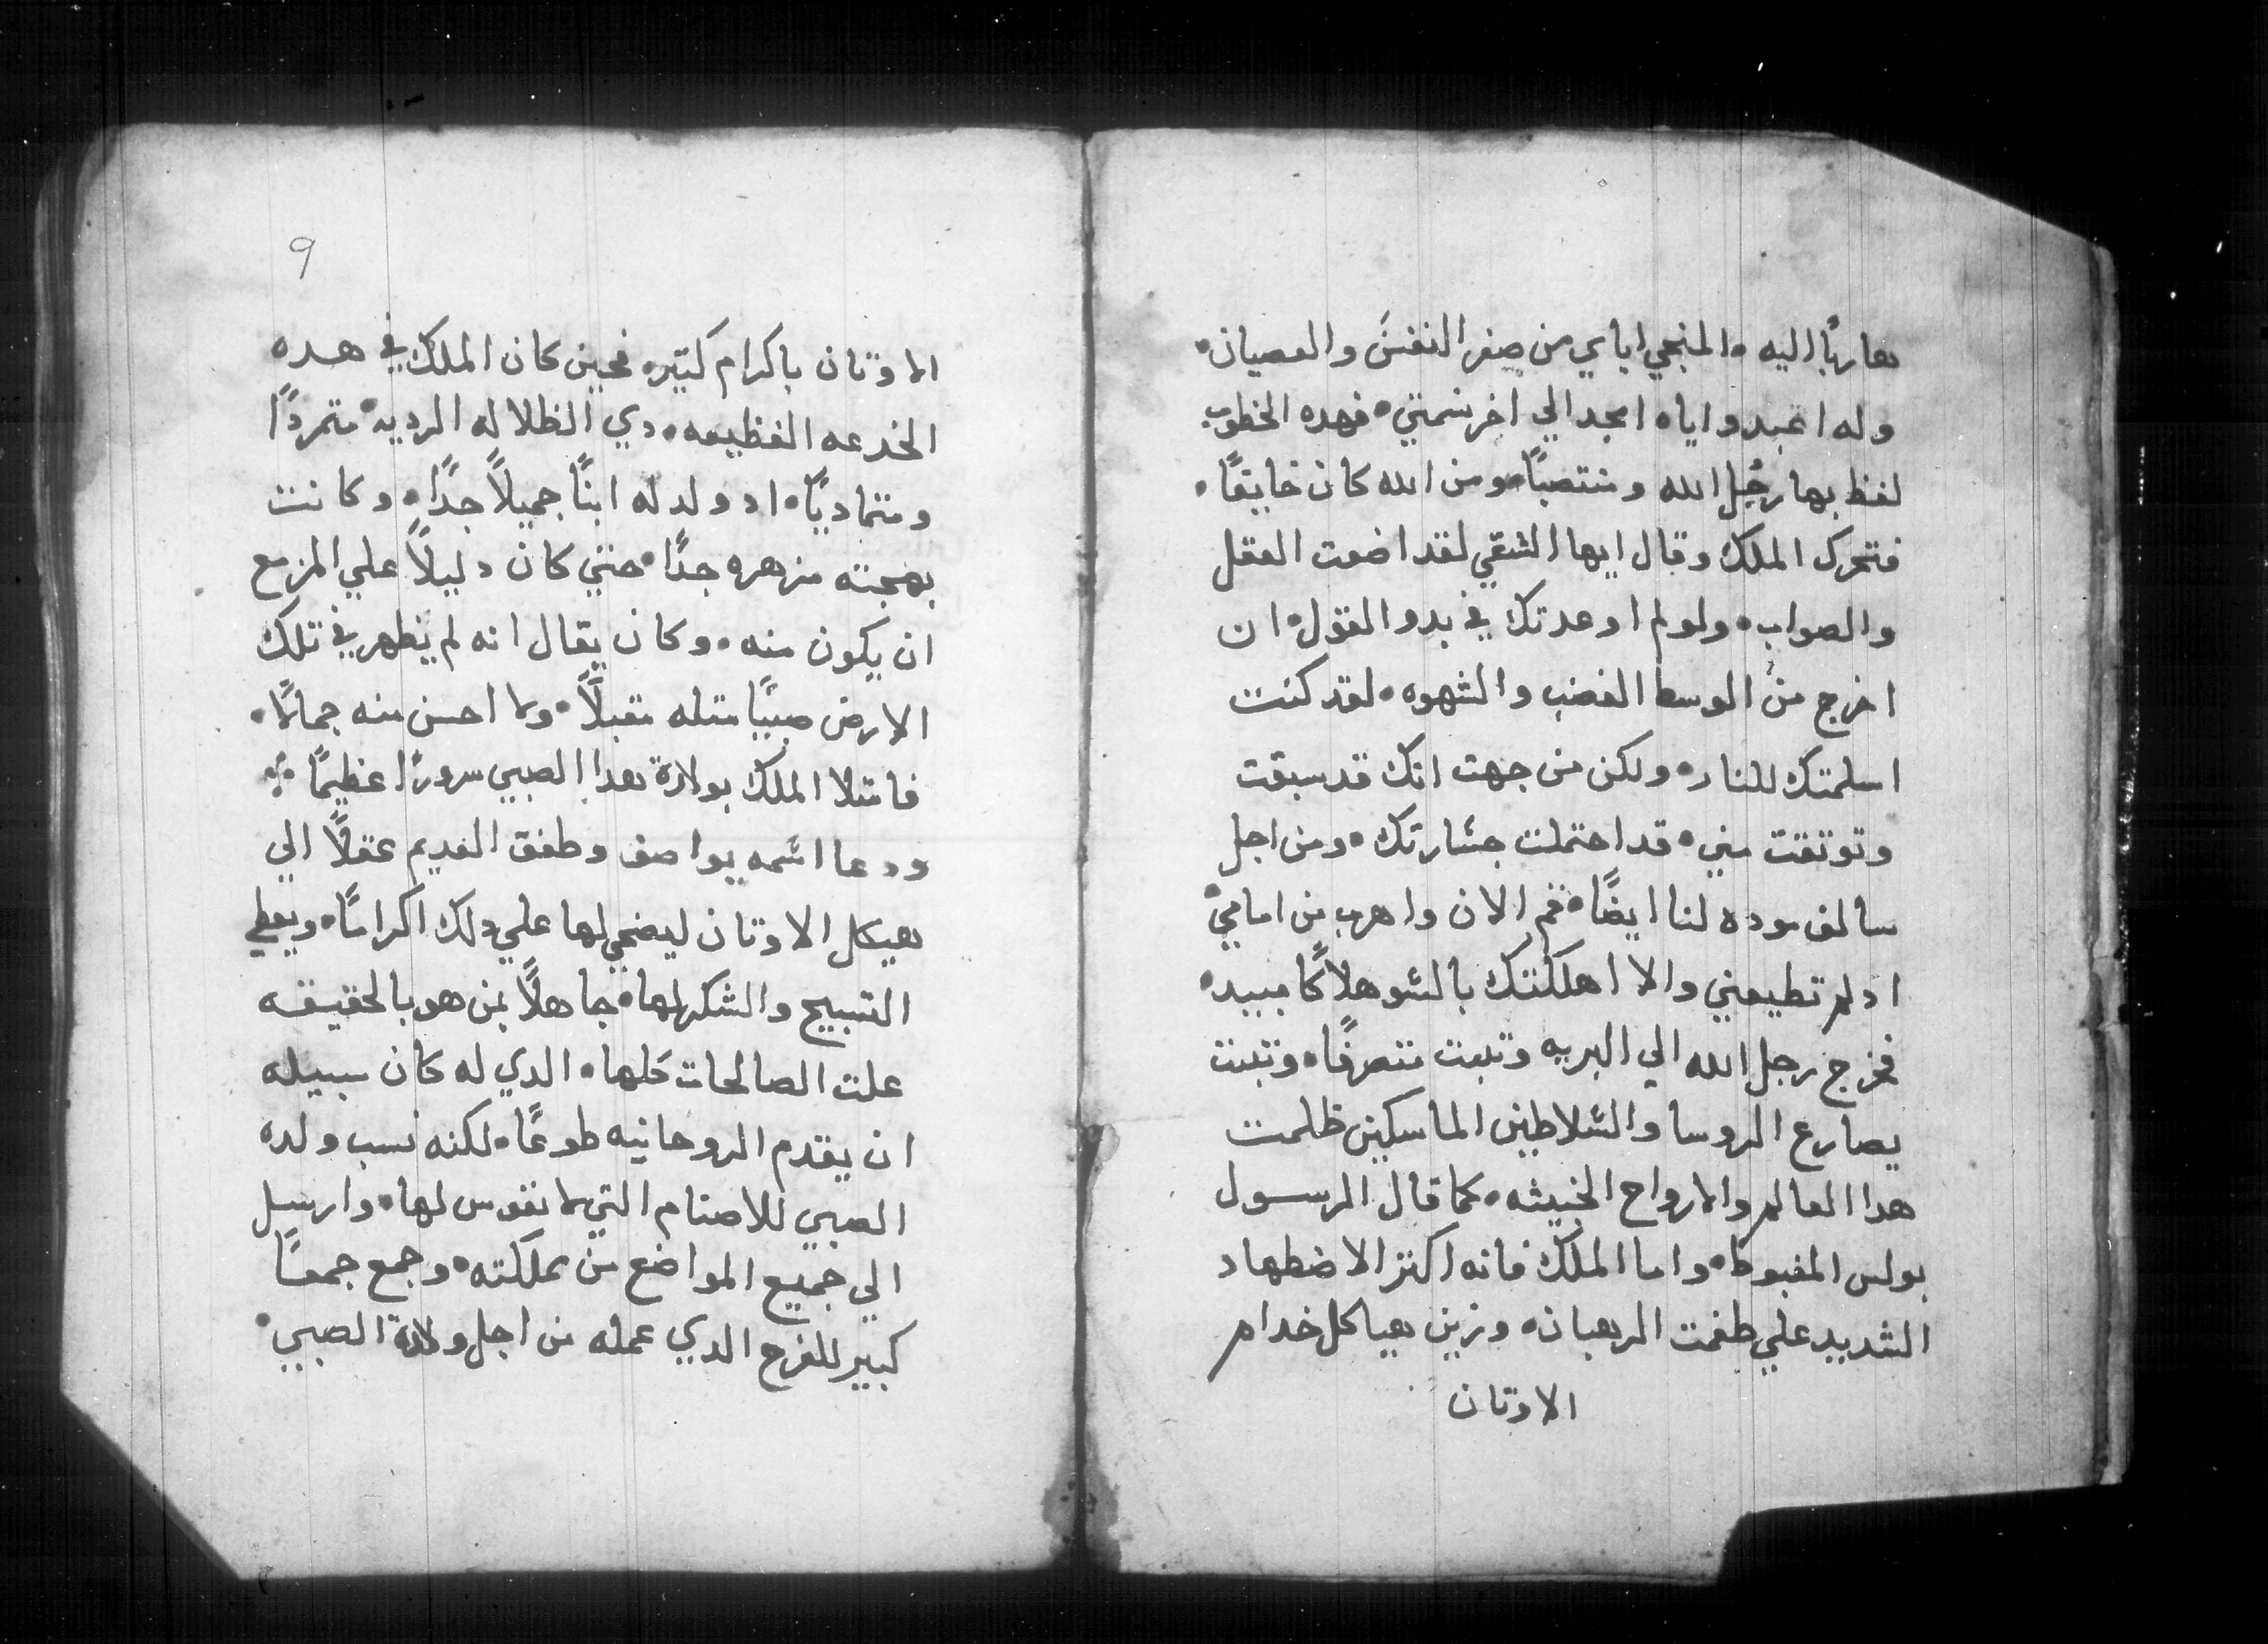 هاربًا اليه • المنجي اياي من صغر النفسَ والعصيان •
وله اعبد واياه امجد الي اخر نسمتي • فهده الخطوب
لفظ بها رجُل الله ومنتصبًا • ومن الله كان خايفًا •
فتحرك الملك وقال ايها الشقي لقد اضعت العقل
والصواب • ولو لم اوعدتك في بدو القول • ان
اخرج من الوسط الغضب والشهوه • لقد كنت
اسلمتك للنار • ولكن من جهت انك قد سبقت
وتوتقت مني • قد احتملت جسَارتك • ومن اجل
سالف موده لنا ايضًا • قم الان واهرب من امامي •
اد لم تطيعني والا اهلكتك بالسَو هلاكًا مبيد •
فخرج رجل الله الي البريه وتبت متصرفًا • وتبت
يصارع الروسا والسَلاطين الماسكين ظلمت
هدا العالم والارواح الخبيثه • كما قال الرسول
بولس المغبوط • واما الملك فانه اكتر الاضطهاد
الشديد علي طغمت الرهبان • وزين هياكل خدام
الاوتان
٩
الاوتان باكرام كتير • فحين كان الملك في هده
الخدعه الفظيعه • دي الظلاله الرديه • متمردًا
ومتماديًا • اد ولد له ابنًا جميلًا جدًا • وكانت
بهجته مزهره جدًا • حتي كان دليلًا علي المزمع
ان يكون منه • وكان يقال انه لم يظهر في تلك
الارض صبيًا متله مقبلًا • ولا احسن منه جمالًا •
فامتلا الملك بولادة هدا الصبي سرورًا عظيمًا
ودعا اسَمه يواصف وطفق الغديم عقلًا الي
هيكل الاوتان ليضحي لها علي دلك اكرامًا • ويعطي
التسبيح والشكر لها • جاهلًا بمن هو بالحقيقه
علت الصالحات كلها • الدي له كان سبيله
ان يقدم الروحانيه طوعًا • لكنه نسب ولده
الصبي للاصنام التي لا نفوس لها • وارسل
الي جميع المواضع من مملكته • وجمع جمعًا
كبير للفرح الدي عمله من اجل ولادة الصبي •